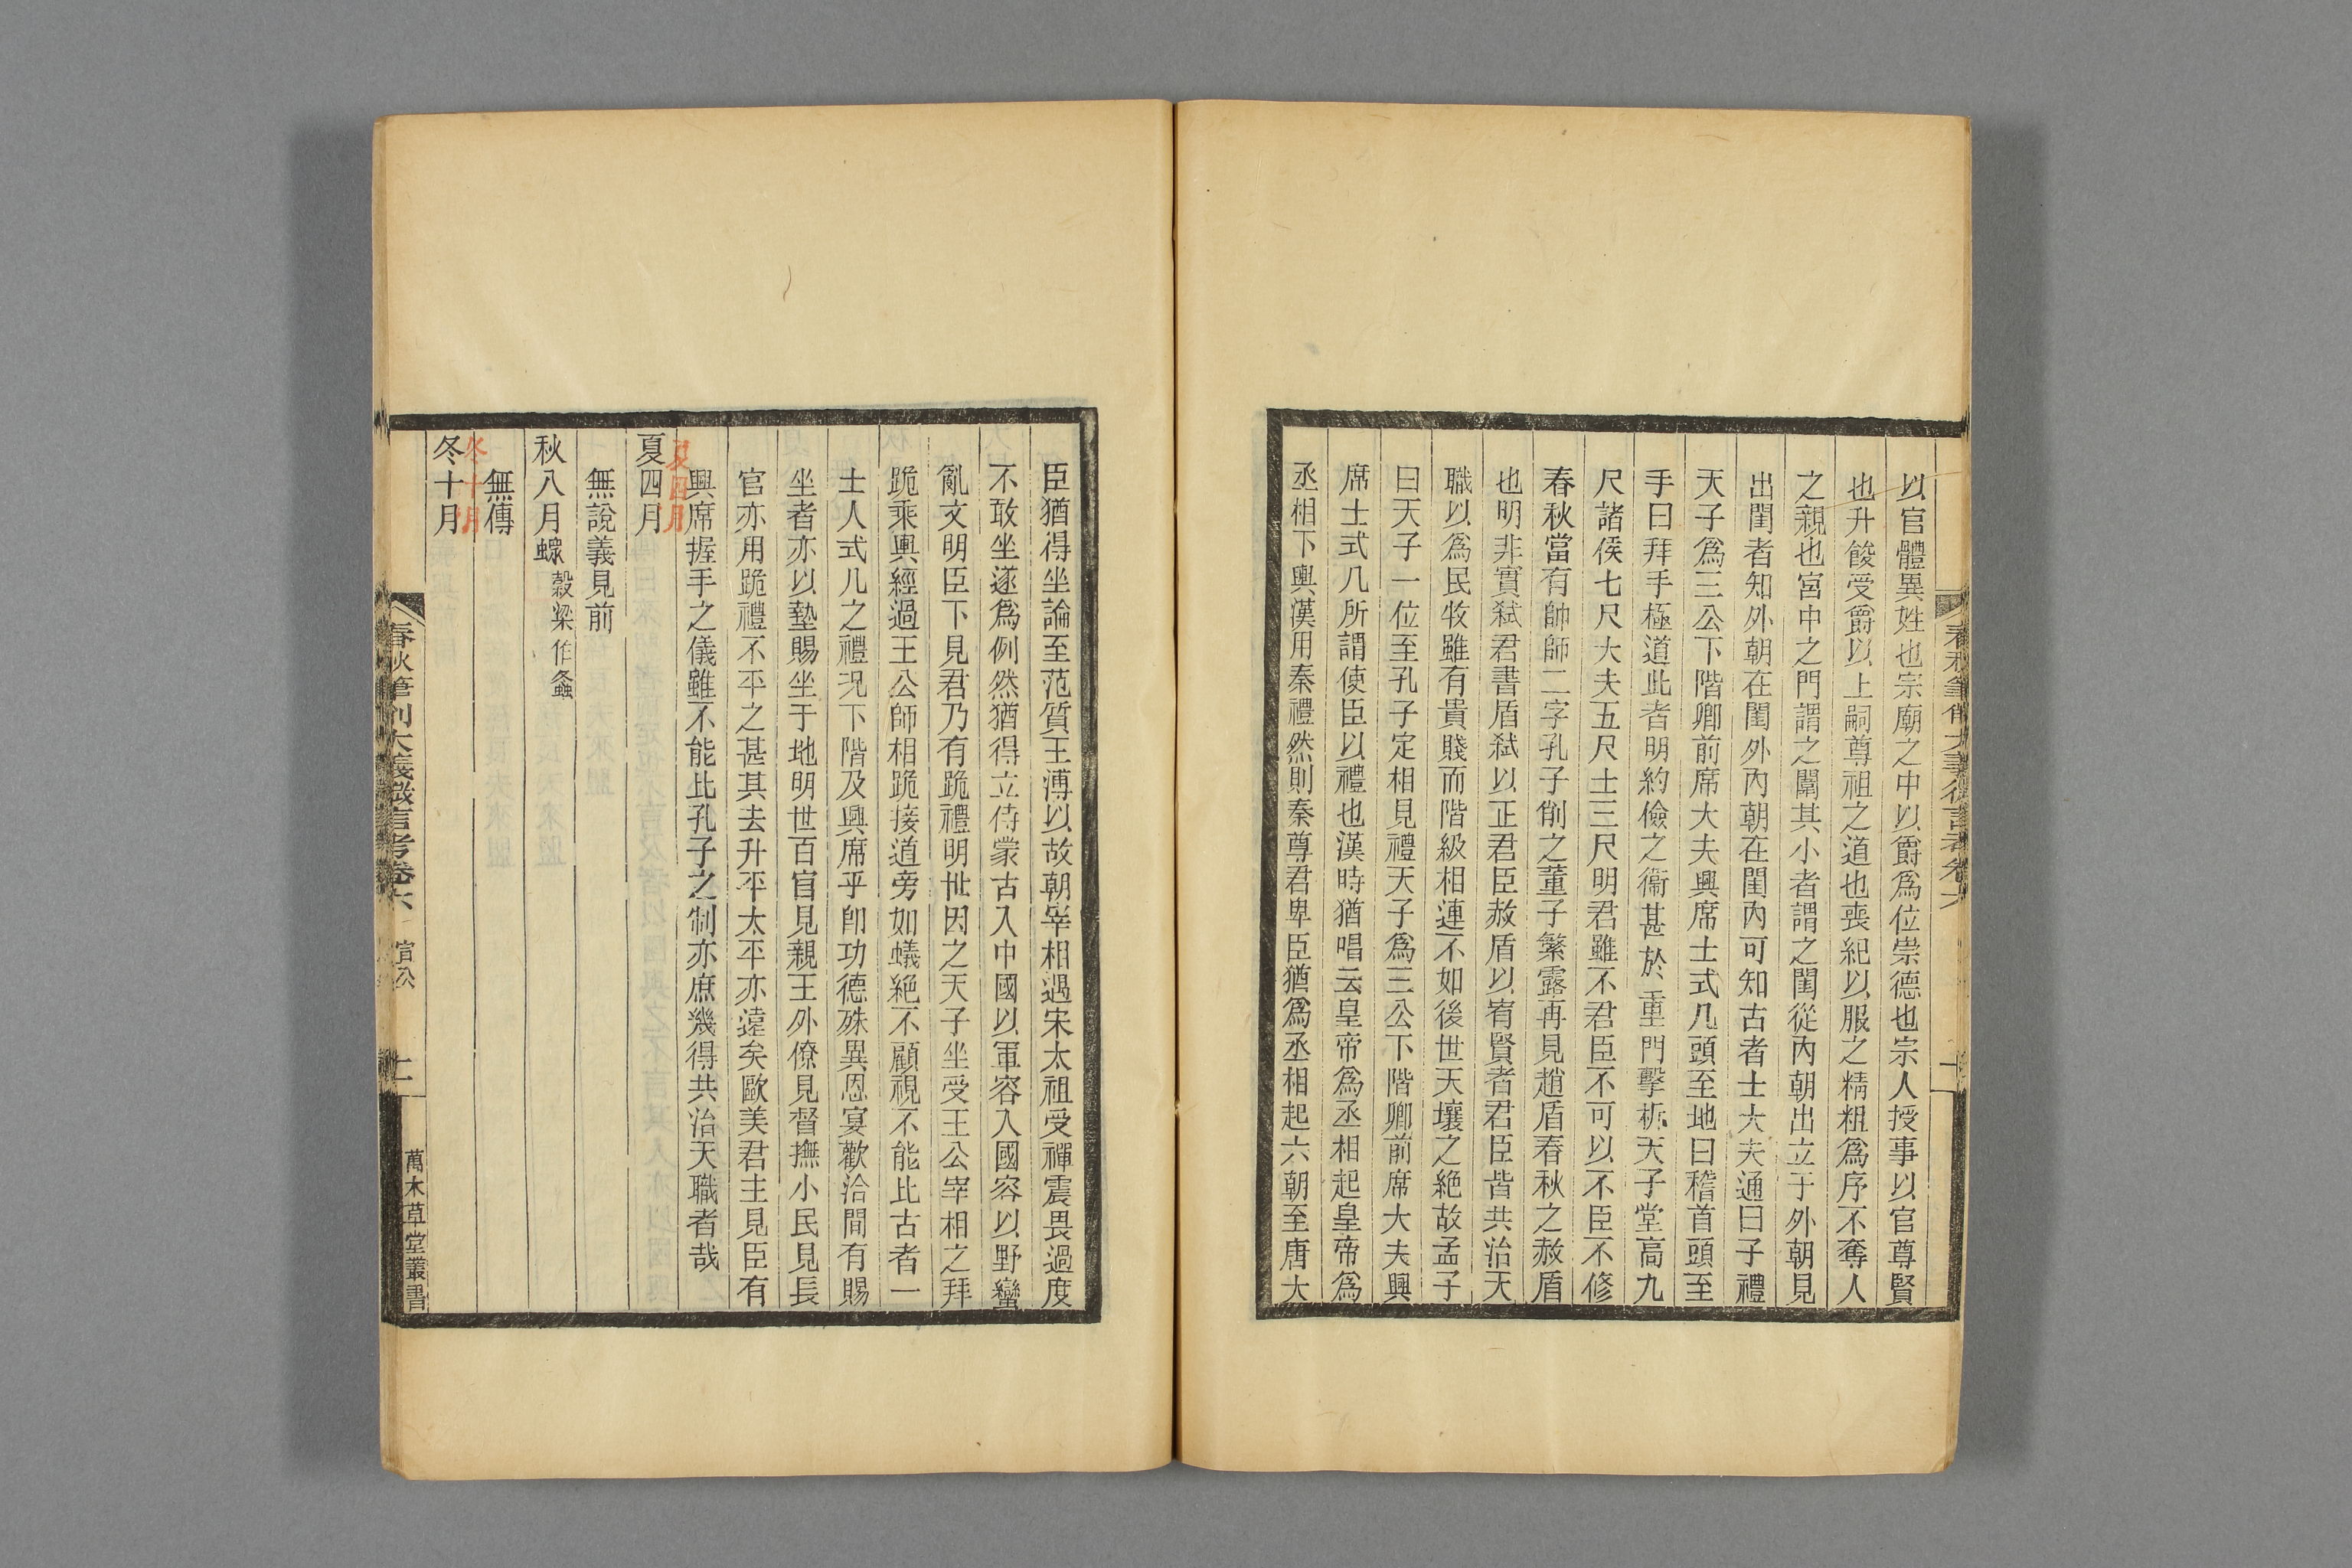 以官體異姓也宗廟之中以爵爲位崇德也宗人授事以官尊賢
也升餕受爵以上嗣尊祖之道也喪紀以服之精粗爲序不奪人
之親也宮中之門謂之闈其小者謂之閨從內朝出立于外朝見
出閨者知外朝在閨外內朝在閨內可知古者士大夫通曰子禮
天子爲三公下階卿前席大夫興席士式几頭至地曰稽首頭至
手曰拜手極道此者明約儉之衞甚於重門擊柝天子堂高九
尺諸侯七尺大夫五尺士三尺明君雖不君臣不可以不臣不修
春秋當有帥師二字孔子削之董子繁露再見趙盾春秋之赦盾
也明非實弒君書盾弒以正君臣赦盾以宥賢者君臣皆共治天
職以爲民牧雖有貴賤而階級相連不如後世天壤之絕故孟子
曰天子一位至孔子定相見禮天子爲三公下階卿前席大夫興
席士式几所謂使臣以禮也漢時猶唱云皇帝爲丞相起皇帝爲
丞相下輿漢用秦禮然則秦尊君卑臣猶爲丞相起六朝至唐大
臣猶得坐論至范質王溥以故朝宰相遇宋太祖受禪震畏過度
不敢坐遂爲例然猶得立侍蒙古入中國以軍容入國容以野蠻
亂文明臣下見君乃有跪禮明世因之天子坐受王公宰相之拜
跪乘輿經過王公師相跪接道旁如蟻絕不顧視不能比古者一
士人式几之禮况下階及興席乎卽功德殊異恩宴歡洽間有賜
坐者亦以墊賜坐于地明世百官見親王外僚見督撫小民見長
官亦用跪禮不平之甚其去升平太平亦遠矣歐美君主見臣有
興席握手之儀雖不能比孔子之制亦庶幾得共治天職者哉
夏四月
夏四月
無說義見前
秋八月螺穀梁作螽
無傳
冬十月
冬十月
春秋筆削大義微言考卷六 宣公
萬木草堂叢書